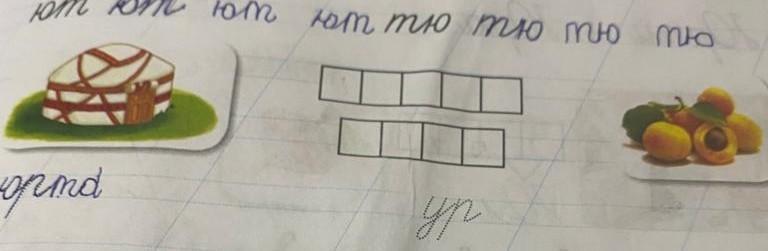 ют ют ют ют тю тю тю тю
юрта
ур